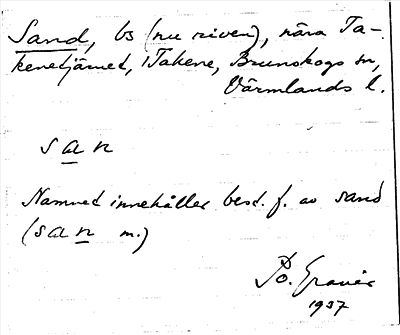 Sand, bs (nu riven), nära Ta-
kenetjärnet, Takene, Brunskogs sn,
Värmlands l.
s a n
Namnet innehåller best. f. av sand
(s a n m.)
1937